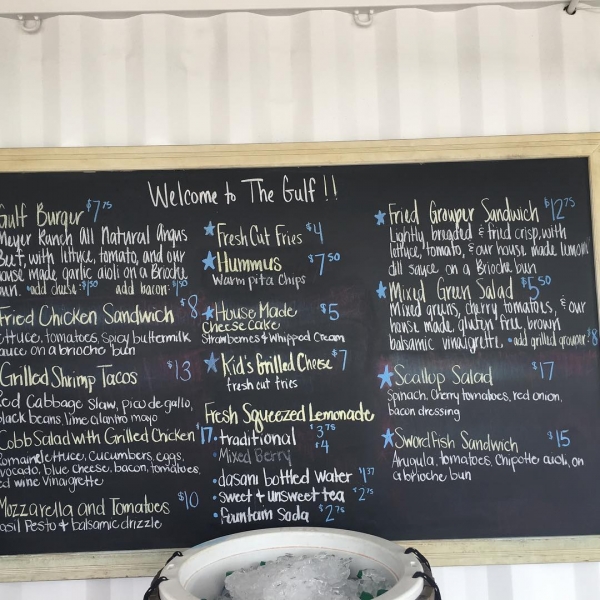 Welcome to The Gulf !!
Gulf Burger $7.75
Meyer Ranch All Natural Angus
Beef, with lettuce, tomato, and our
house made garlic aioli on a Brioche
bun. •add cheese: $1.50 add bacon: $1.50
Fried Chicken Sandwich $8
lettuce, tomatoes, spicy buttermilk
sauce on a brioche bun
Grilled Shrimp Tacos $13
Red Cabbage Slaw, pico de gallo,
black beans, lime cilantro mayo
Cobb Salad with Grilled Chicken $17
Romaine lettuce, cucumbers, eggs,
avocado, blue cheese, bacon, tomatoes,
red wine vinaigrette
Mozzarella and Tomatoes $10
basil Pesto & balsamic drizzle
Fresh Cut Fries $4
Hummus $7.50
Warm pita Chips
House Made $5
Cheesecake
Strawberries & Whipped Cream
Kid's Grilled Cheese $7
fresh cut fries
Fresh Squeezed Lemonade
• traditional $3.75
• Mixed Berry $4
• dasani bottled water
• sweet & unsweet tea $2.75
• fountain soda $2.75
Fried Grouper Sandwich $12.75
Lightly breaded & fried crisp, with
lettuce, tomato, & our house made lemon
dill sauce on a Brioche bun
Mixed Green Salad $5.50
Mixed greens, cherry tomatoes, & our
house made, gluten free, brown
balsamic vinaigrette. • add grilled grouper $8
Scallop Salad $17
Spinach, Cherry tomatoes, red onion,
bacon dressing
Swordfish Sandwich $15
Arugula, tomatoes, Chipotle aioli, on
a brioche bun